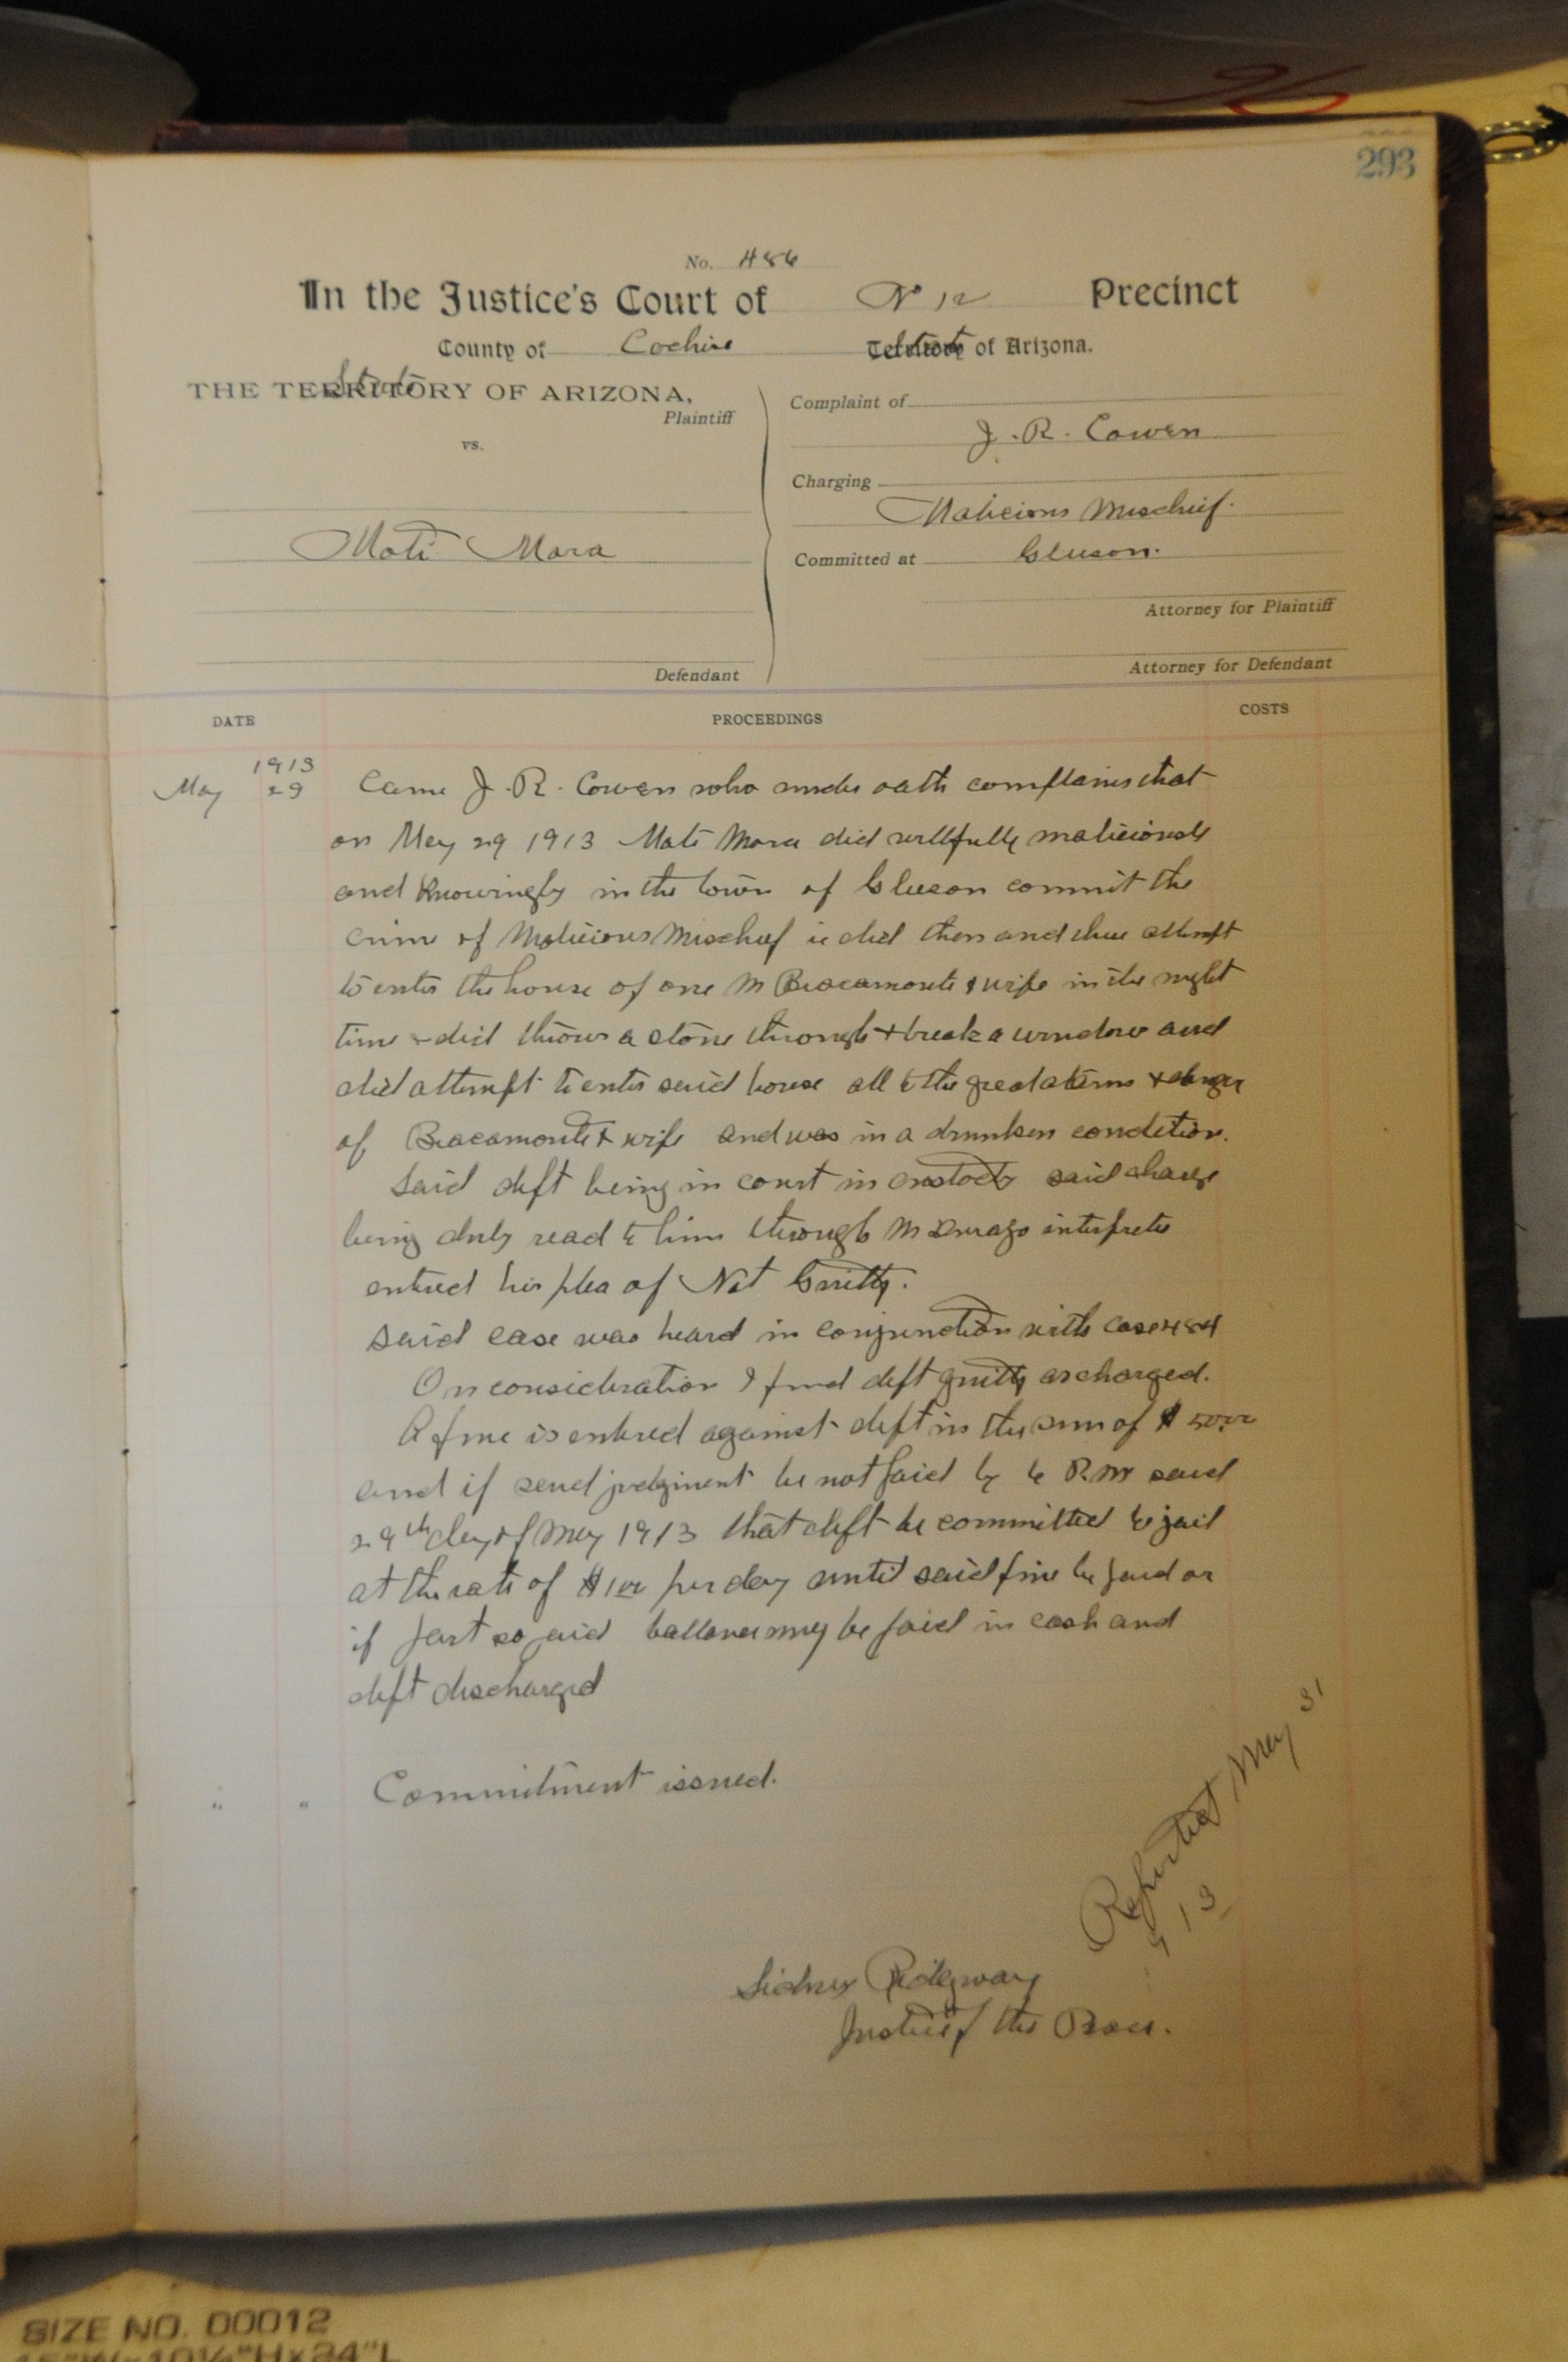 293
No. 486
In the Justice's Court of No 12 Precinct
County of Cochise State of Arizona.
State
THE TERRITORY OF ARIZONA,
Plaintiff
vs.
Mati Mora
Defendant
Complaint of
J. R. Cowen
Charging
Malicious Mischief.
Committed at Gleeson.
Attorney for Plaintiff
Attorney for Defendant
DATE PROCEEDINGS COSTS
1913
May 29 Came J. R. Cowen who under oath complains that
on May 29 1913 Mati Mora did willfully maliciously
and Knowingly in the town of Gleeson commit the
crime of Malicious Mischief ie did then and there attempt
to enter the house of one M Bracamonte & wife in the night
time & did throw a stone through + break a window and
did attempt to enter said house all to the great alarm + danger
of Bracamonte & wife and was in a drunken condition.
Said deft being in court in custody said charge
being duly read to him through M Durazo interpreter
entered his plea of Not Guilty.
Said case was heard in conjunction with case 484
On consideration I find deft guilty as charged.
A fine is entered against deft in the sum of $ 50.00
and if said judgment be not paid by 6 P.M said
29th day of May 1913 that deft be committed to jail
at the rate of $1.00 per day until said fine be paid or
if part so paid ballance may be paid in cash and
deft discharged
" " Commitment issued.
Reported May 31
13
Sidney Ridgway
Justice of the Peace.
SIZE NO. 00012
15"W×10¼"H×24"L